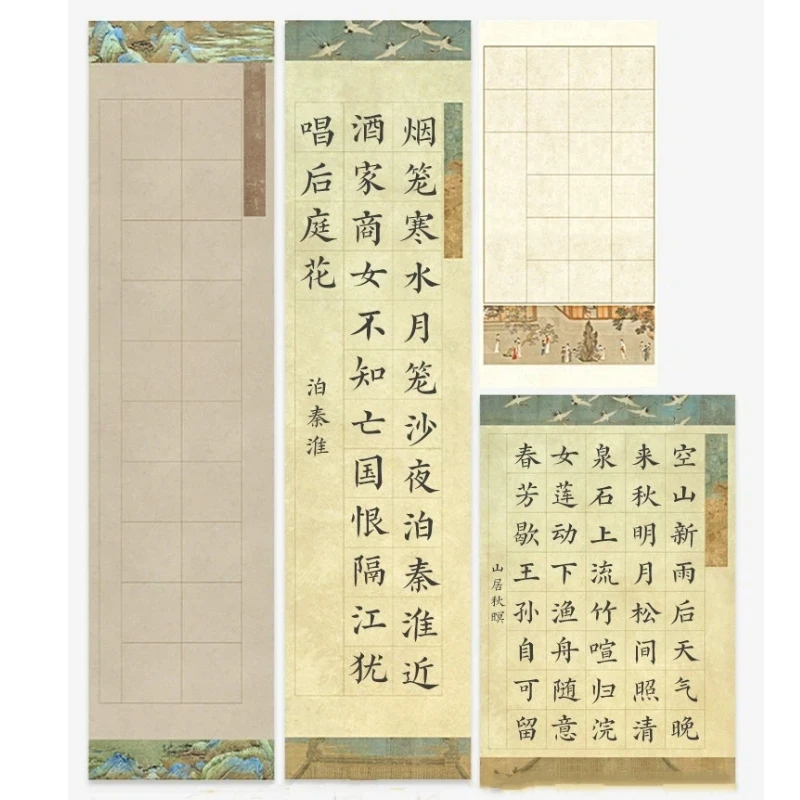 烟笼寒水月笼沙夜泊秦淮近
酒家商女不知亡国恨隔江犹
唱后庭花
泊秦淮
空山新雨后天气晚
来秋明月松间照清
泉石上流竹喧归浣
女莲动下渔舟随意
春芳歇王孙自可留
山居秋暝